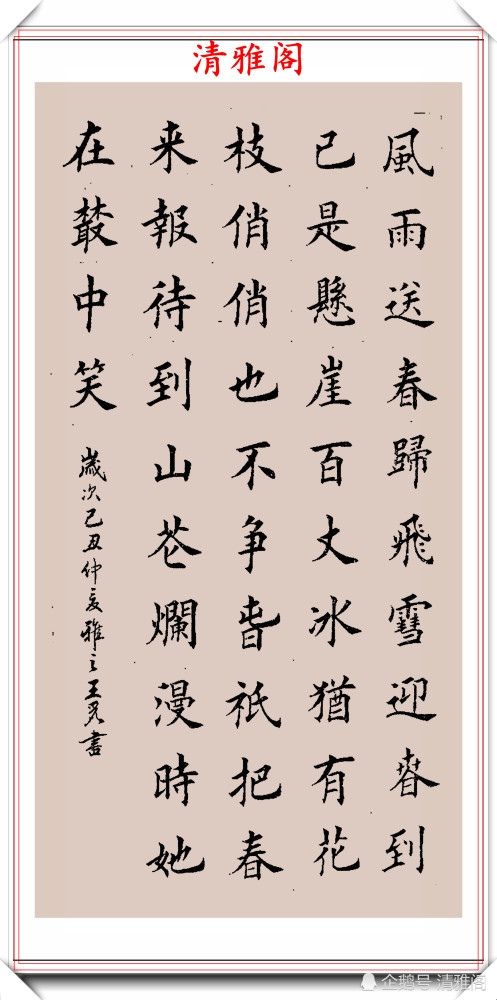 清雅阁
風雨送春歸飛雪迎旾到
已是懸崖百丈冰猶有花
枝俏俏也不争旾祇把春
来報待到山花爛漫時她
在叢中笑
歲次己丑仲夏雅之王書
企鹅号 清雅阁